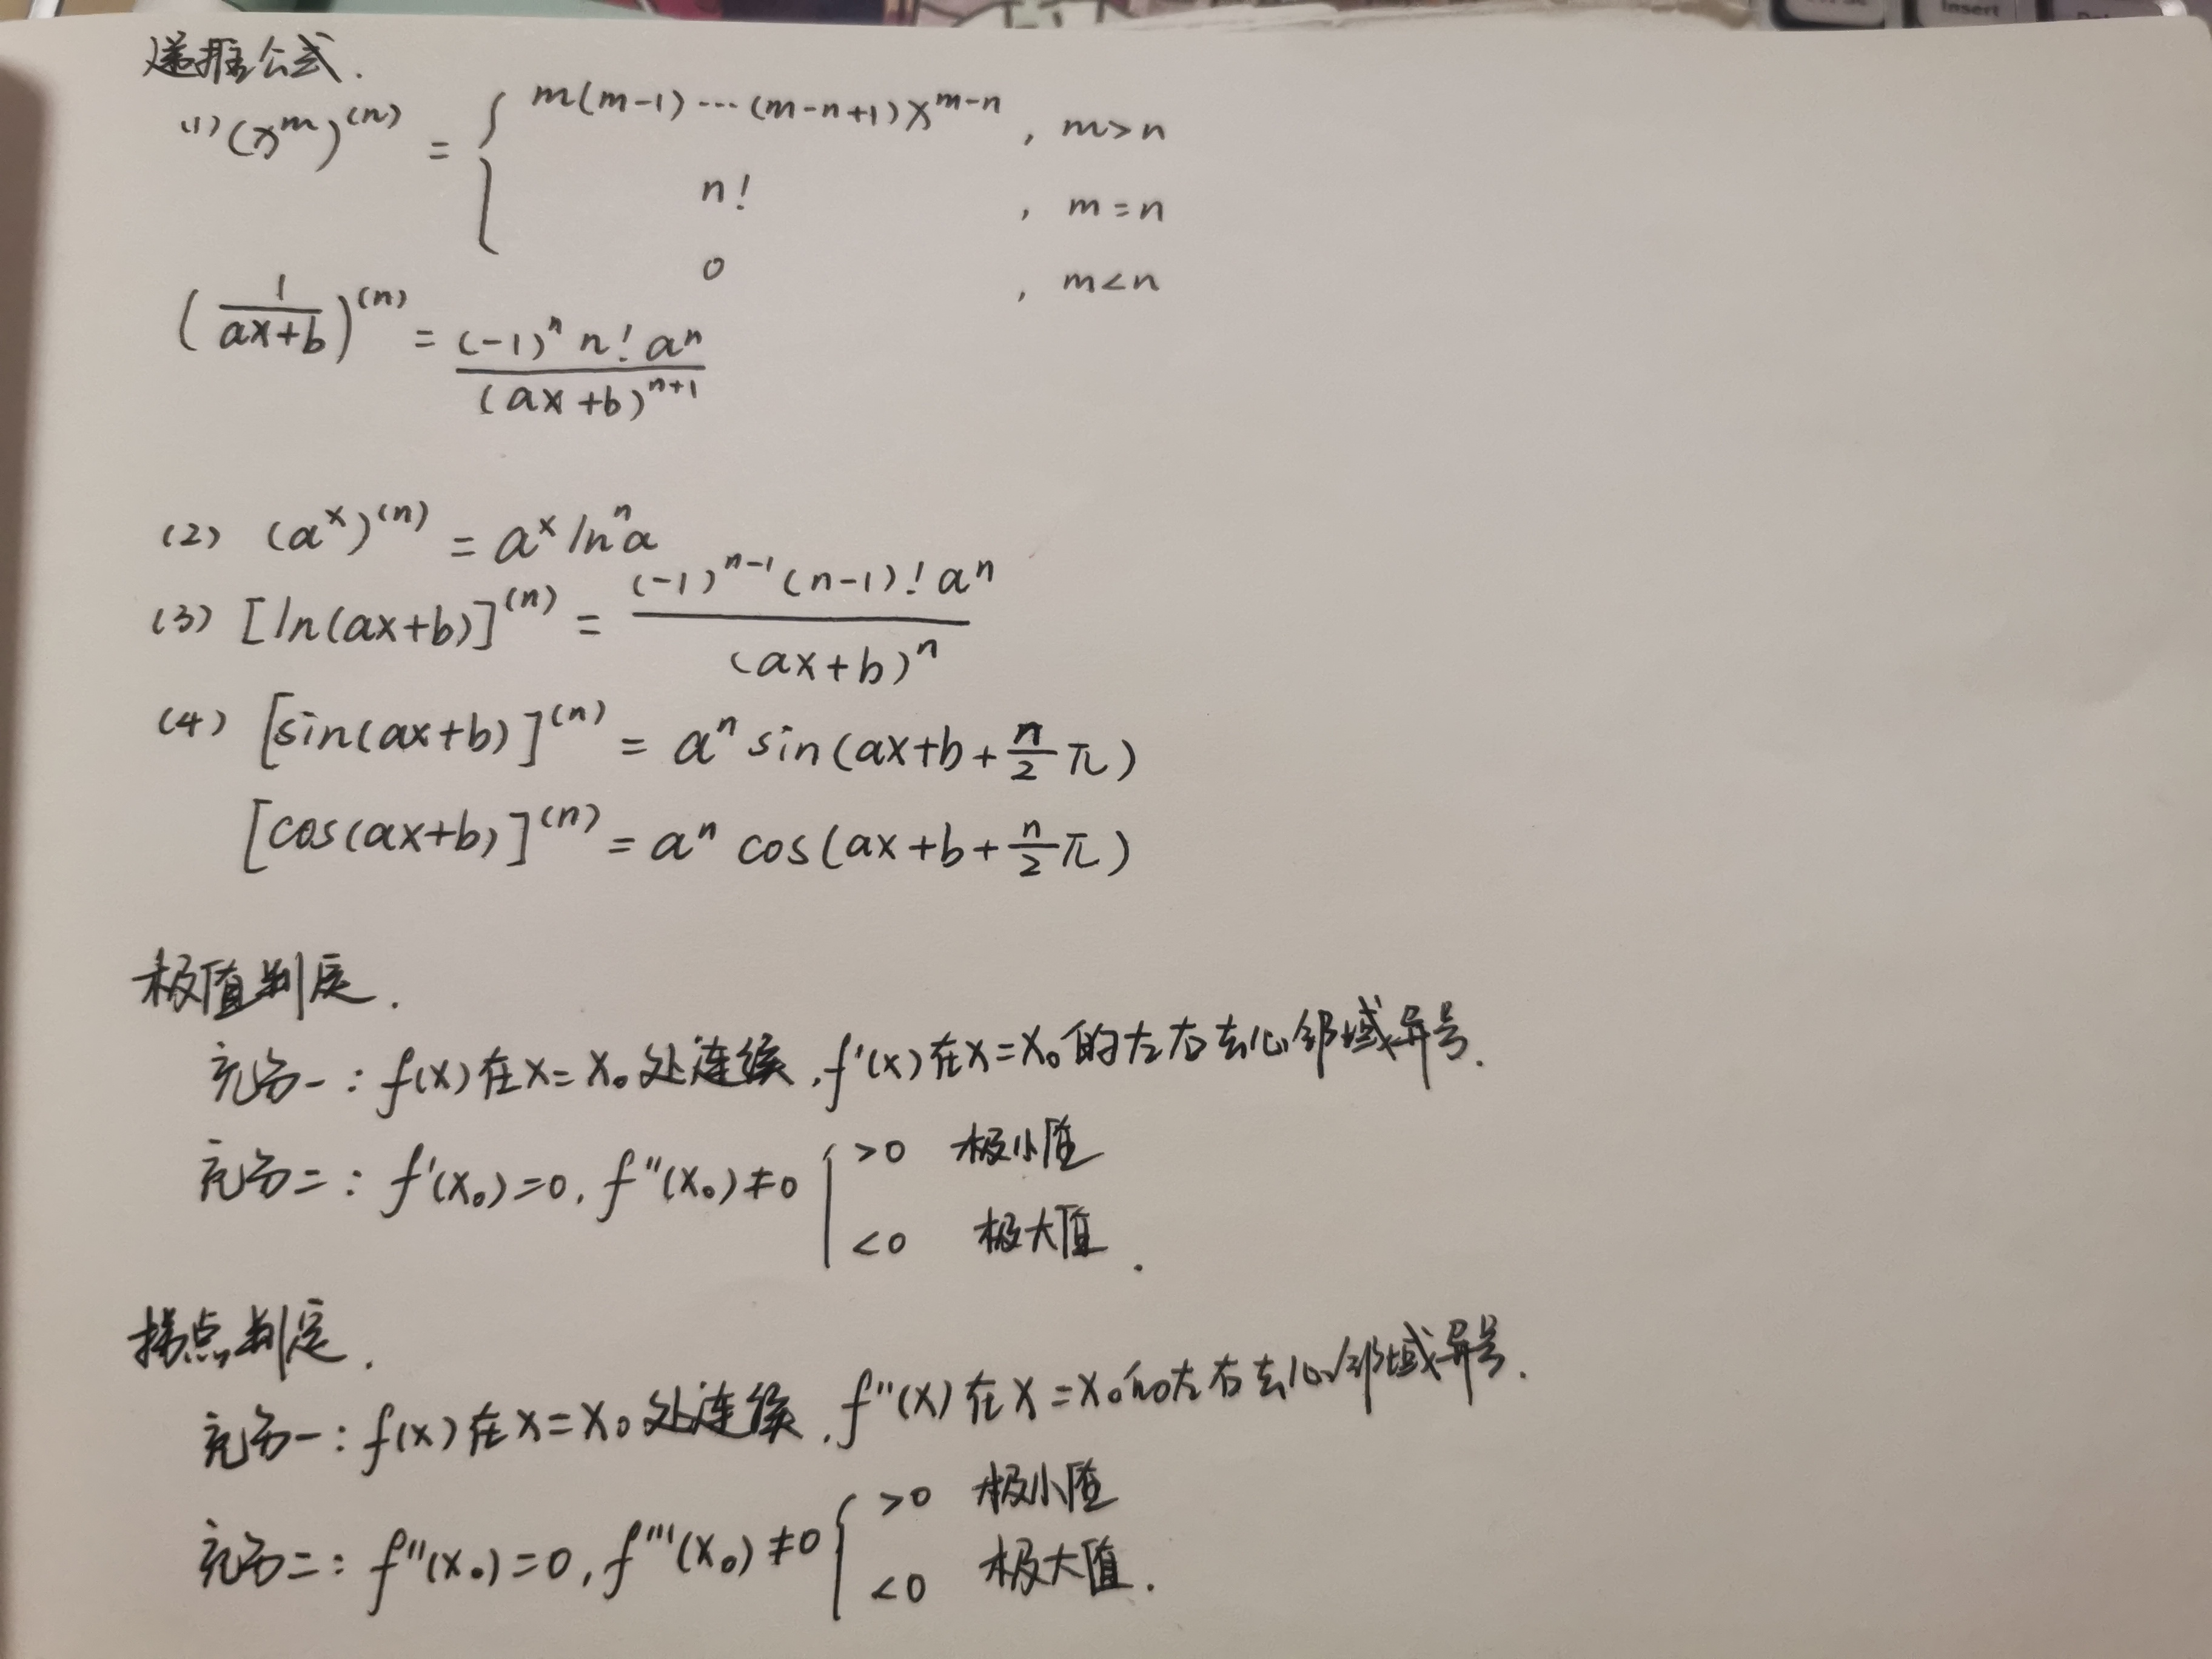 Insert
递推公式.
(1) (x^m)^(n) = { m(m-1)···(m-n+1)x^(m-n) , m>n
n! , m=n
0 , m<n
(1/(ax+b))^(n) = (-1)^n n! a^n / (ax+b)^(n+1)
(2) (a^x)^(n) = a^x ln^n a
(3) [ln(ax+b)]^(n) = (-1)^(n-1) (n-1)! a^n / (ax+b)^n
(4) [sin(ax+b)]^(n) = a^n sin(ax+b+n/2 π)
[cos(ax+b)]^(n) = a^n cos(ax+b+n/2 π)
极值判定.
充分一: f(x)在x=x₀处连续,f'(x)在x=x₀的左右去心邻域异号.
充分二: f'(x₀)=0, f''(x₀)≠0 { >0 极小值
<0 极大值.
拐点判定.
充分一: f(x)在x=x₀处连续,f''(x)在x=x₀的左右去心邻域异号.
充分二: f''(x₀)=0, f'''(x₀)≠0 { >0 极小值
<0 极大值.